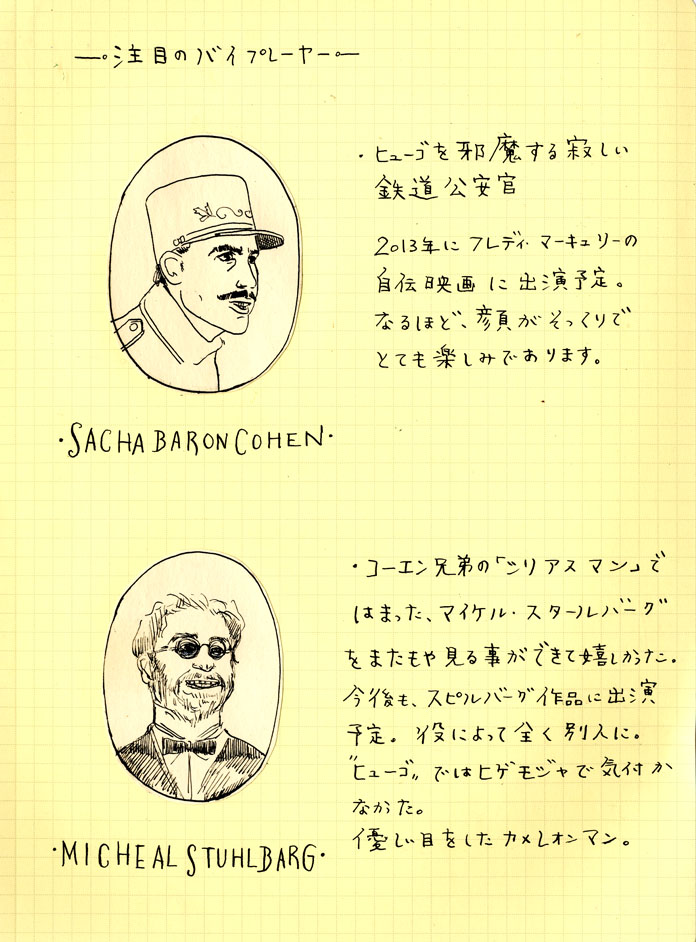 注目のバイプレーヤー
・ヒューゴを邪魔する寂しい
鉄道公安官
2013年にフレディ・マーキュリーの
自伝映画に出演予定。
なるほど、顔がそっくりで
とても楽しみであります。
・SACHA BARON COHEN・
・コーエン兄弟の「シリアスマン」で
はまった、マイケル・スタールバーグ
をまたもや見る事ができて嬉しかった。
今後も、スピルバーグ作品に出演
予定。役によって全く別人に。
"ヒューゴ"ではヒゲモジャで気付か
なかった。
優しい目をしたカメレオンマン。
・MICHEAL STUHLBARG・